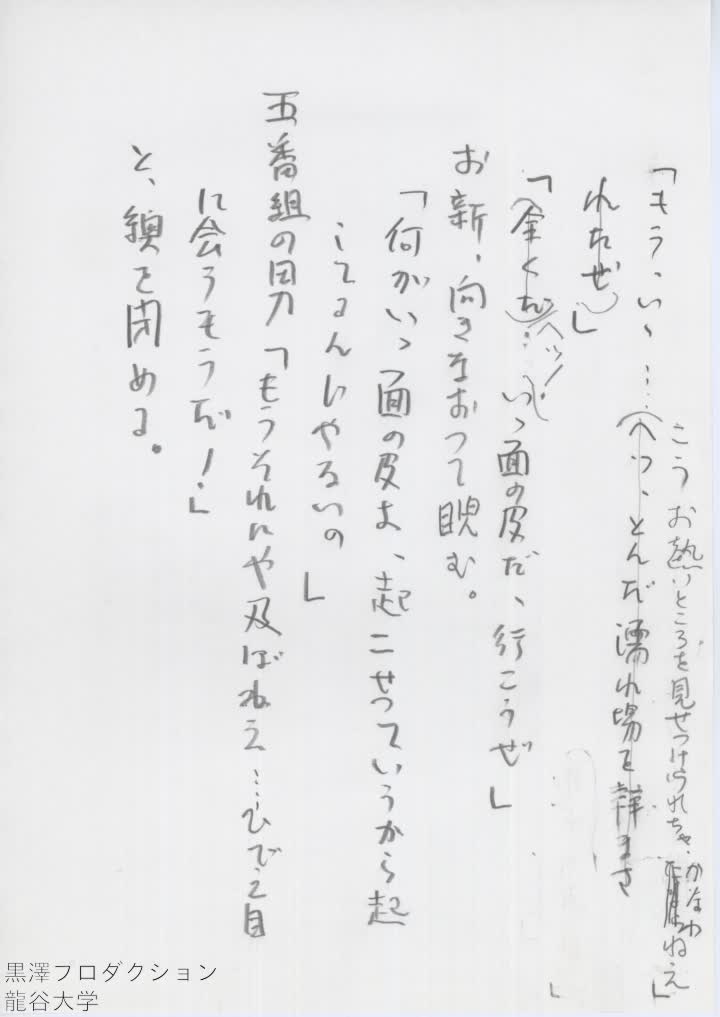 「もう、いゝ……(へっ、とんだ濡れ場を拝まさ
こうお熱いところを見せつけられちゃ、かなわねえ」
れたぜ)」
「(全くだ)…へッ!いゝ面の皮だ、行こうぜ」
お新、向きなおって睨む。
「何がいゝ面の皮よ、起こせっていうから起
こしてるんじゃないの」
五番組の男「もうそれにや及ばねえ…ひでえ目
に会うもうだ!」
と、襖を閉める。
黒澤プロダクション
龍谷大学